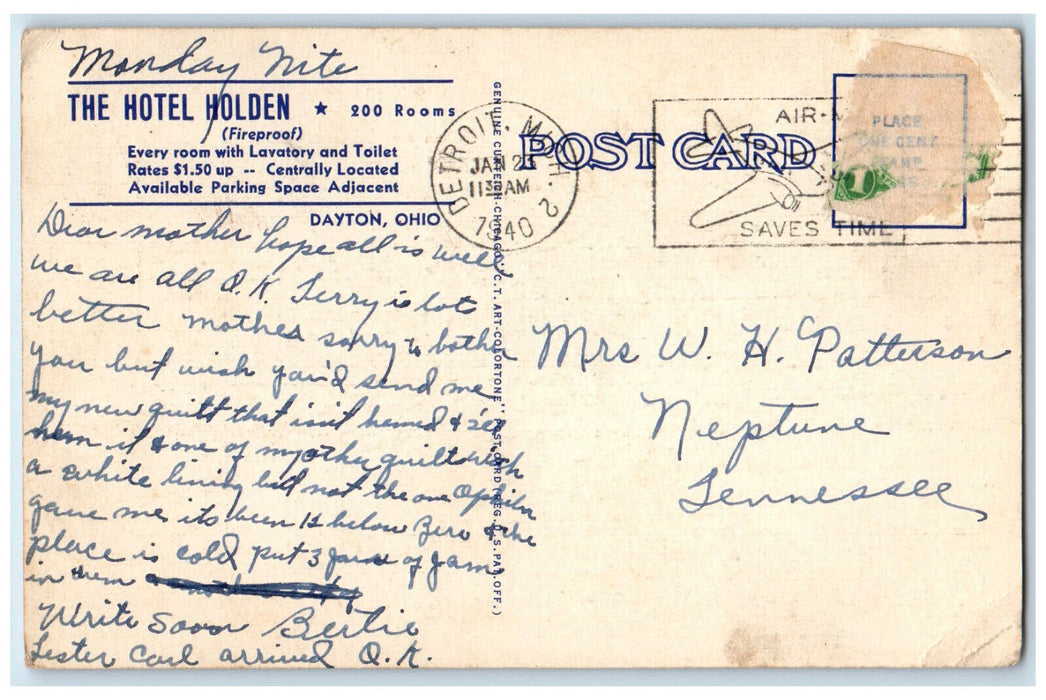 Monday Nite
THE HOTEL HOLDEN ★ 200 Rooms
(Fireproof)
Every room with Lavatory and Toilet
Rates $1.50 up -- Centrally Located
Available Parking Space Adjacent
DAYTON, OHIO
Dear mother hope all is well
we are all O.K. Jerry is lot
better mother sorry to bother
you but wish you'd send me
my new quilt that isn't hemed & I'll
hem it & one of my other quilts with
a white lining but not the one
gave me its been 12 below zero & the
place is cold put 3 jars of Jam
in them
Write Soon Bertie
Lester Carl arrived O.K.
GENUINE CURTEICH-CHICAGO "C.T. ART-COLORTONE" POST CARD (REG. U.S. PAT. OFF.)
DETROIT, MICH. 2
JAN 23
11 30 AM
1940
POST CARD
AIR-
SAVES TIME
PLACE
ONE CENT
STAMP
1
Mrs W. H. Patterson
Neptune
Tennessee